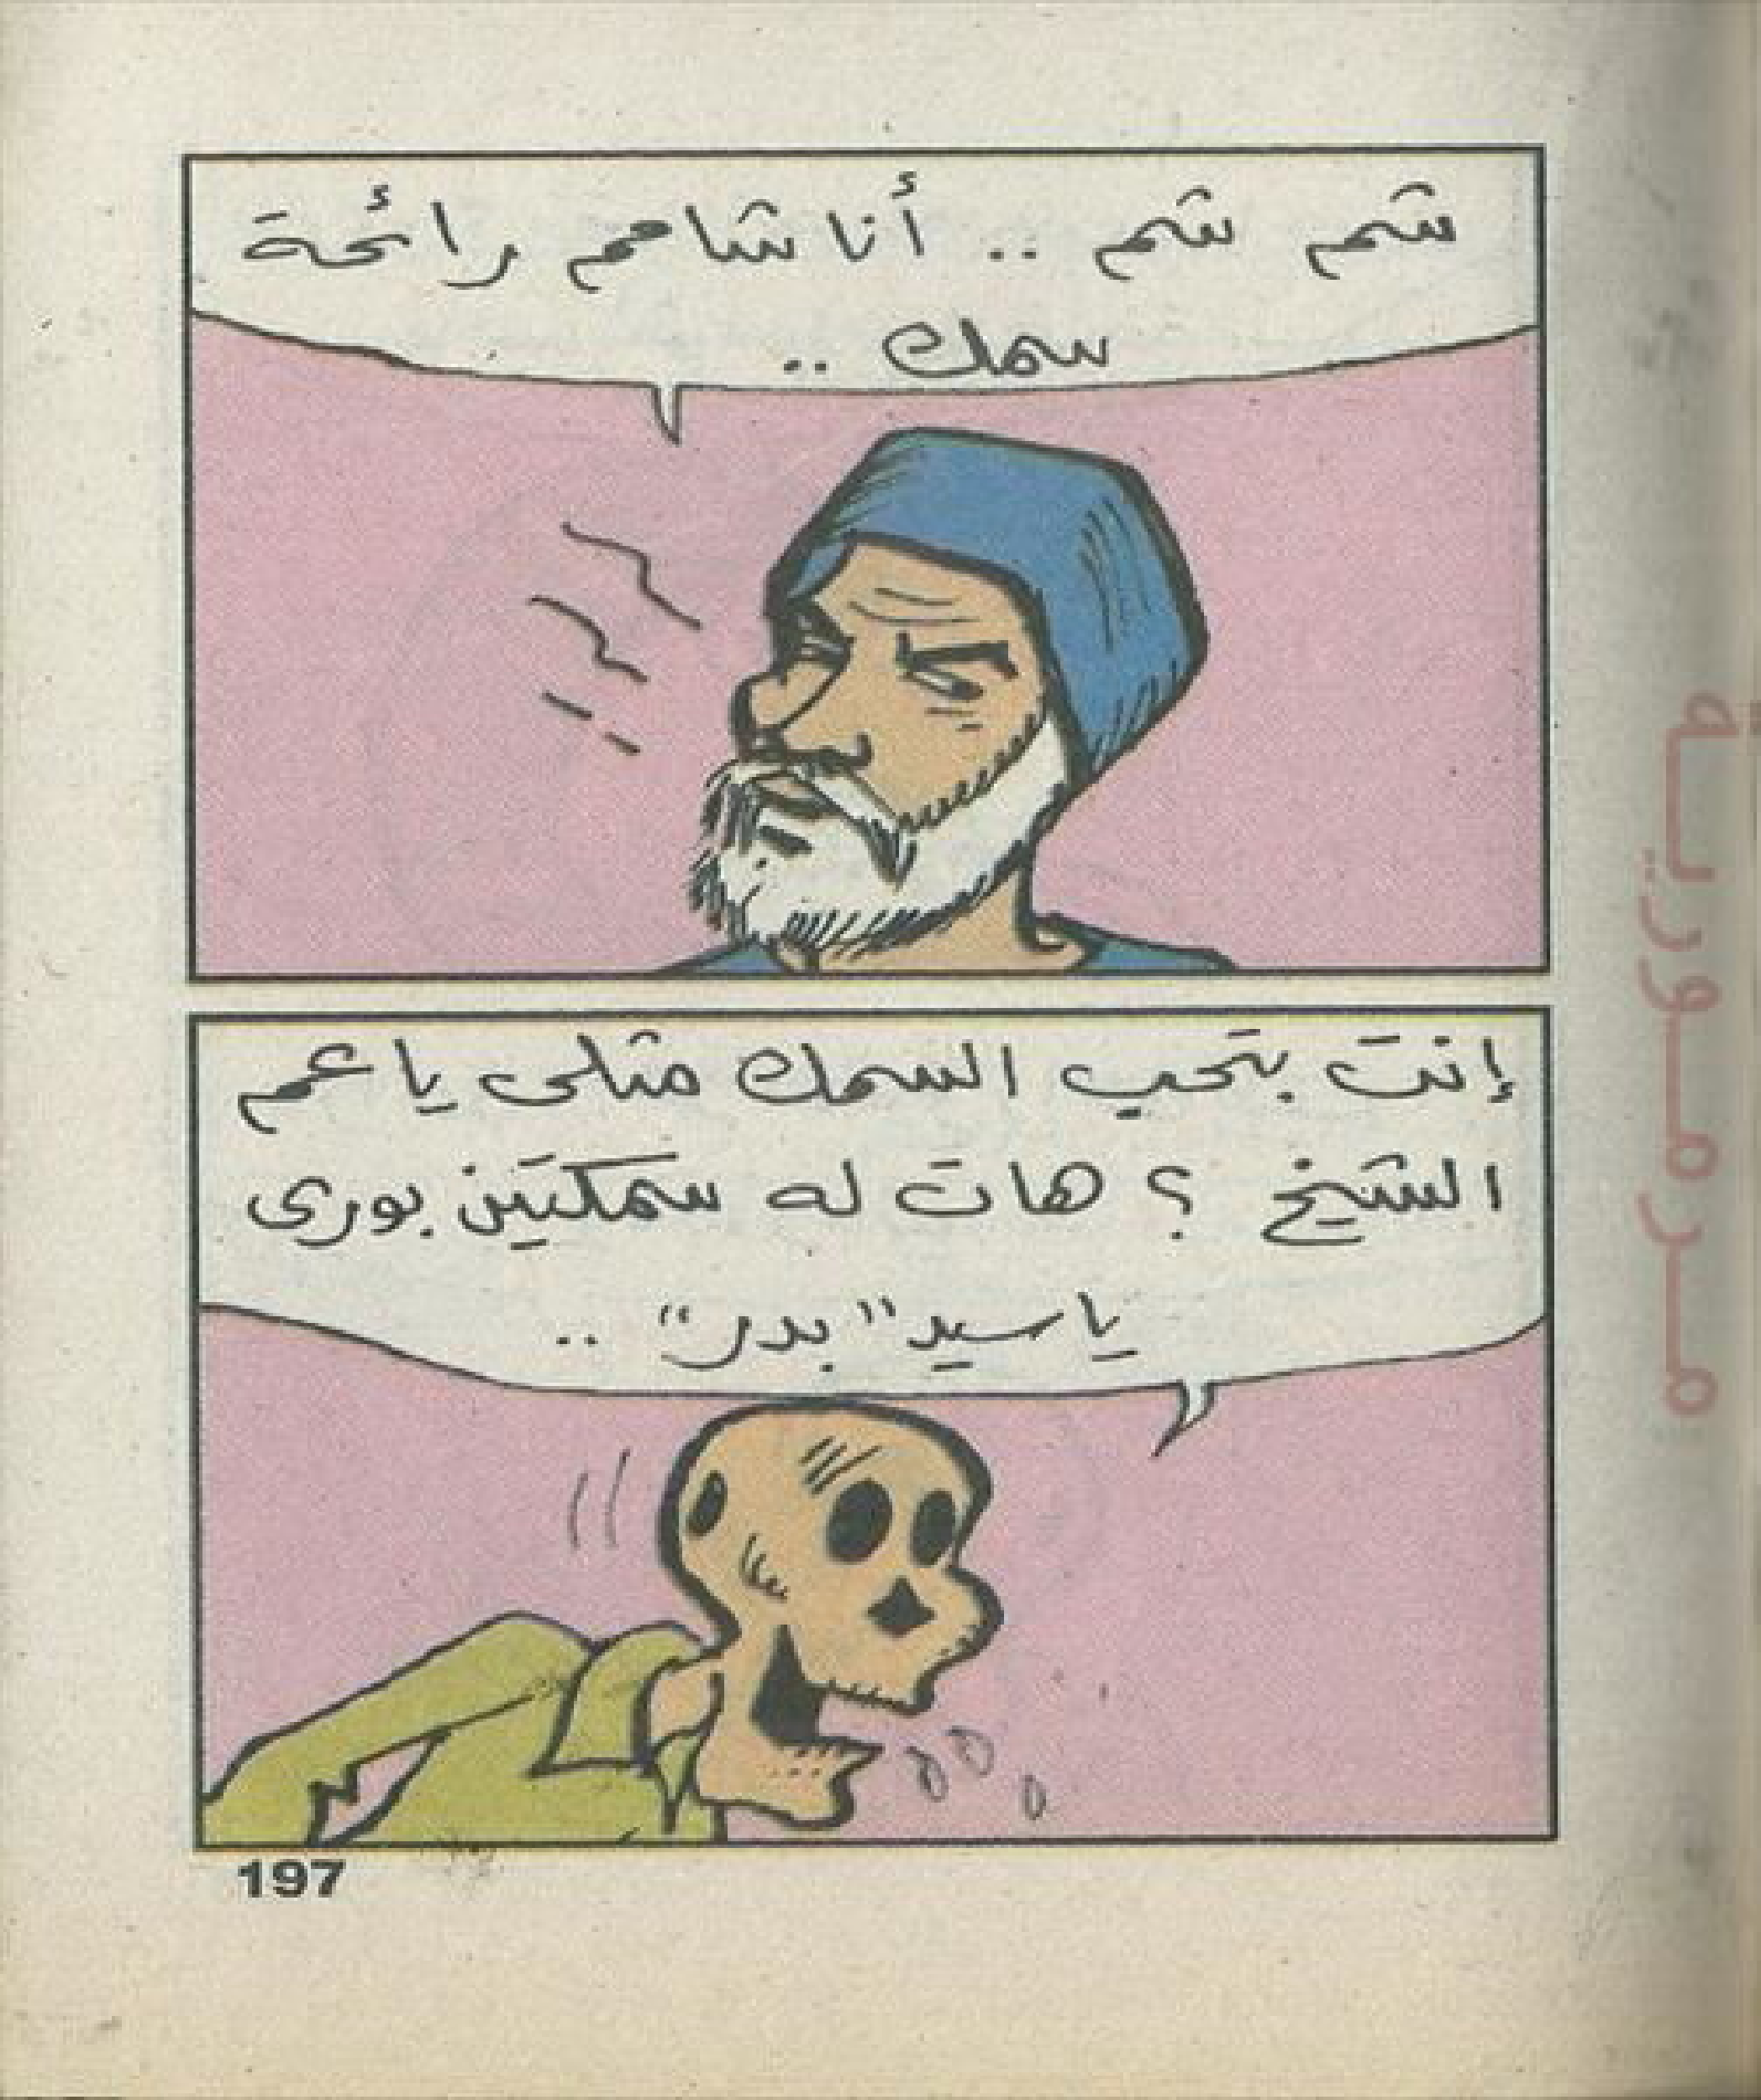 شم شم .. أنا شامم رائحة
سمك ..
إنت بتحب السمك مثلى يا عم
الشيخ ؟ هات له سمكتين بورى
يا سيد "بدر" ..
197
مرمورية